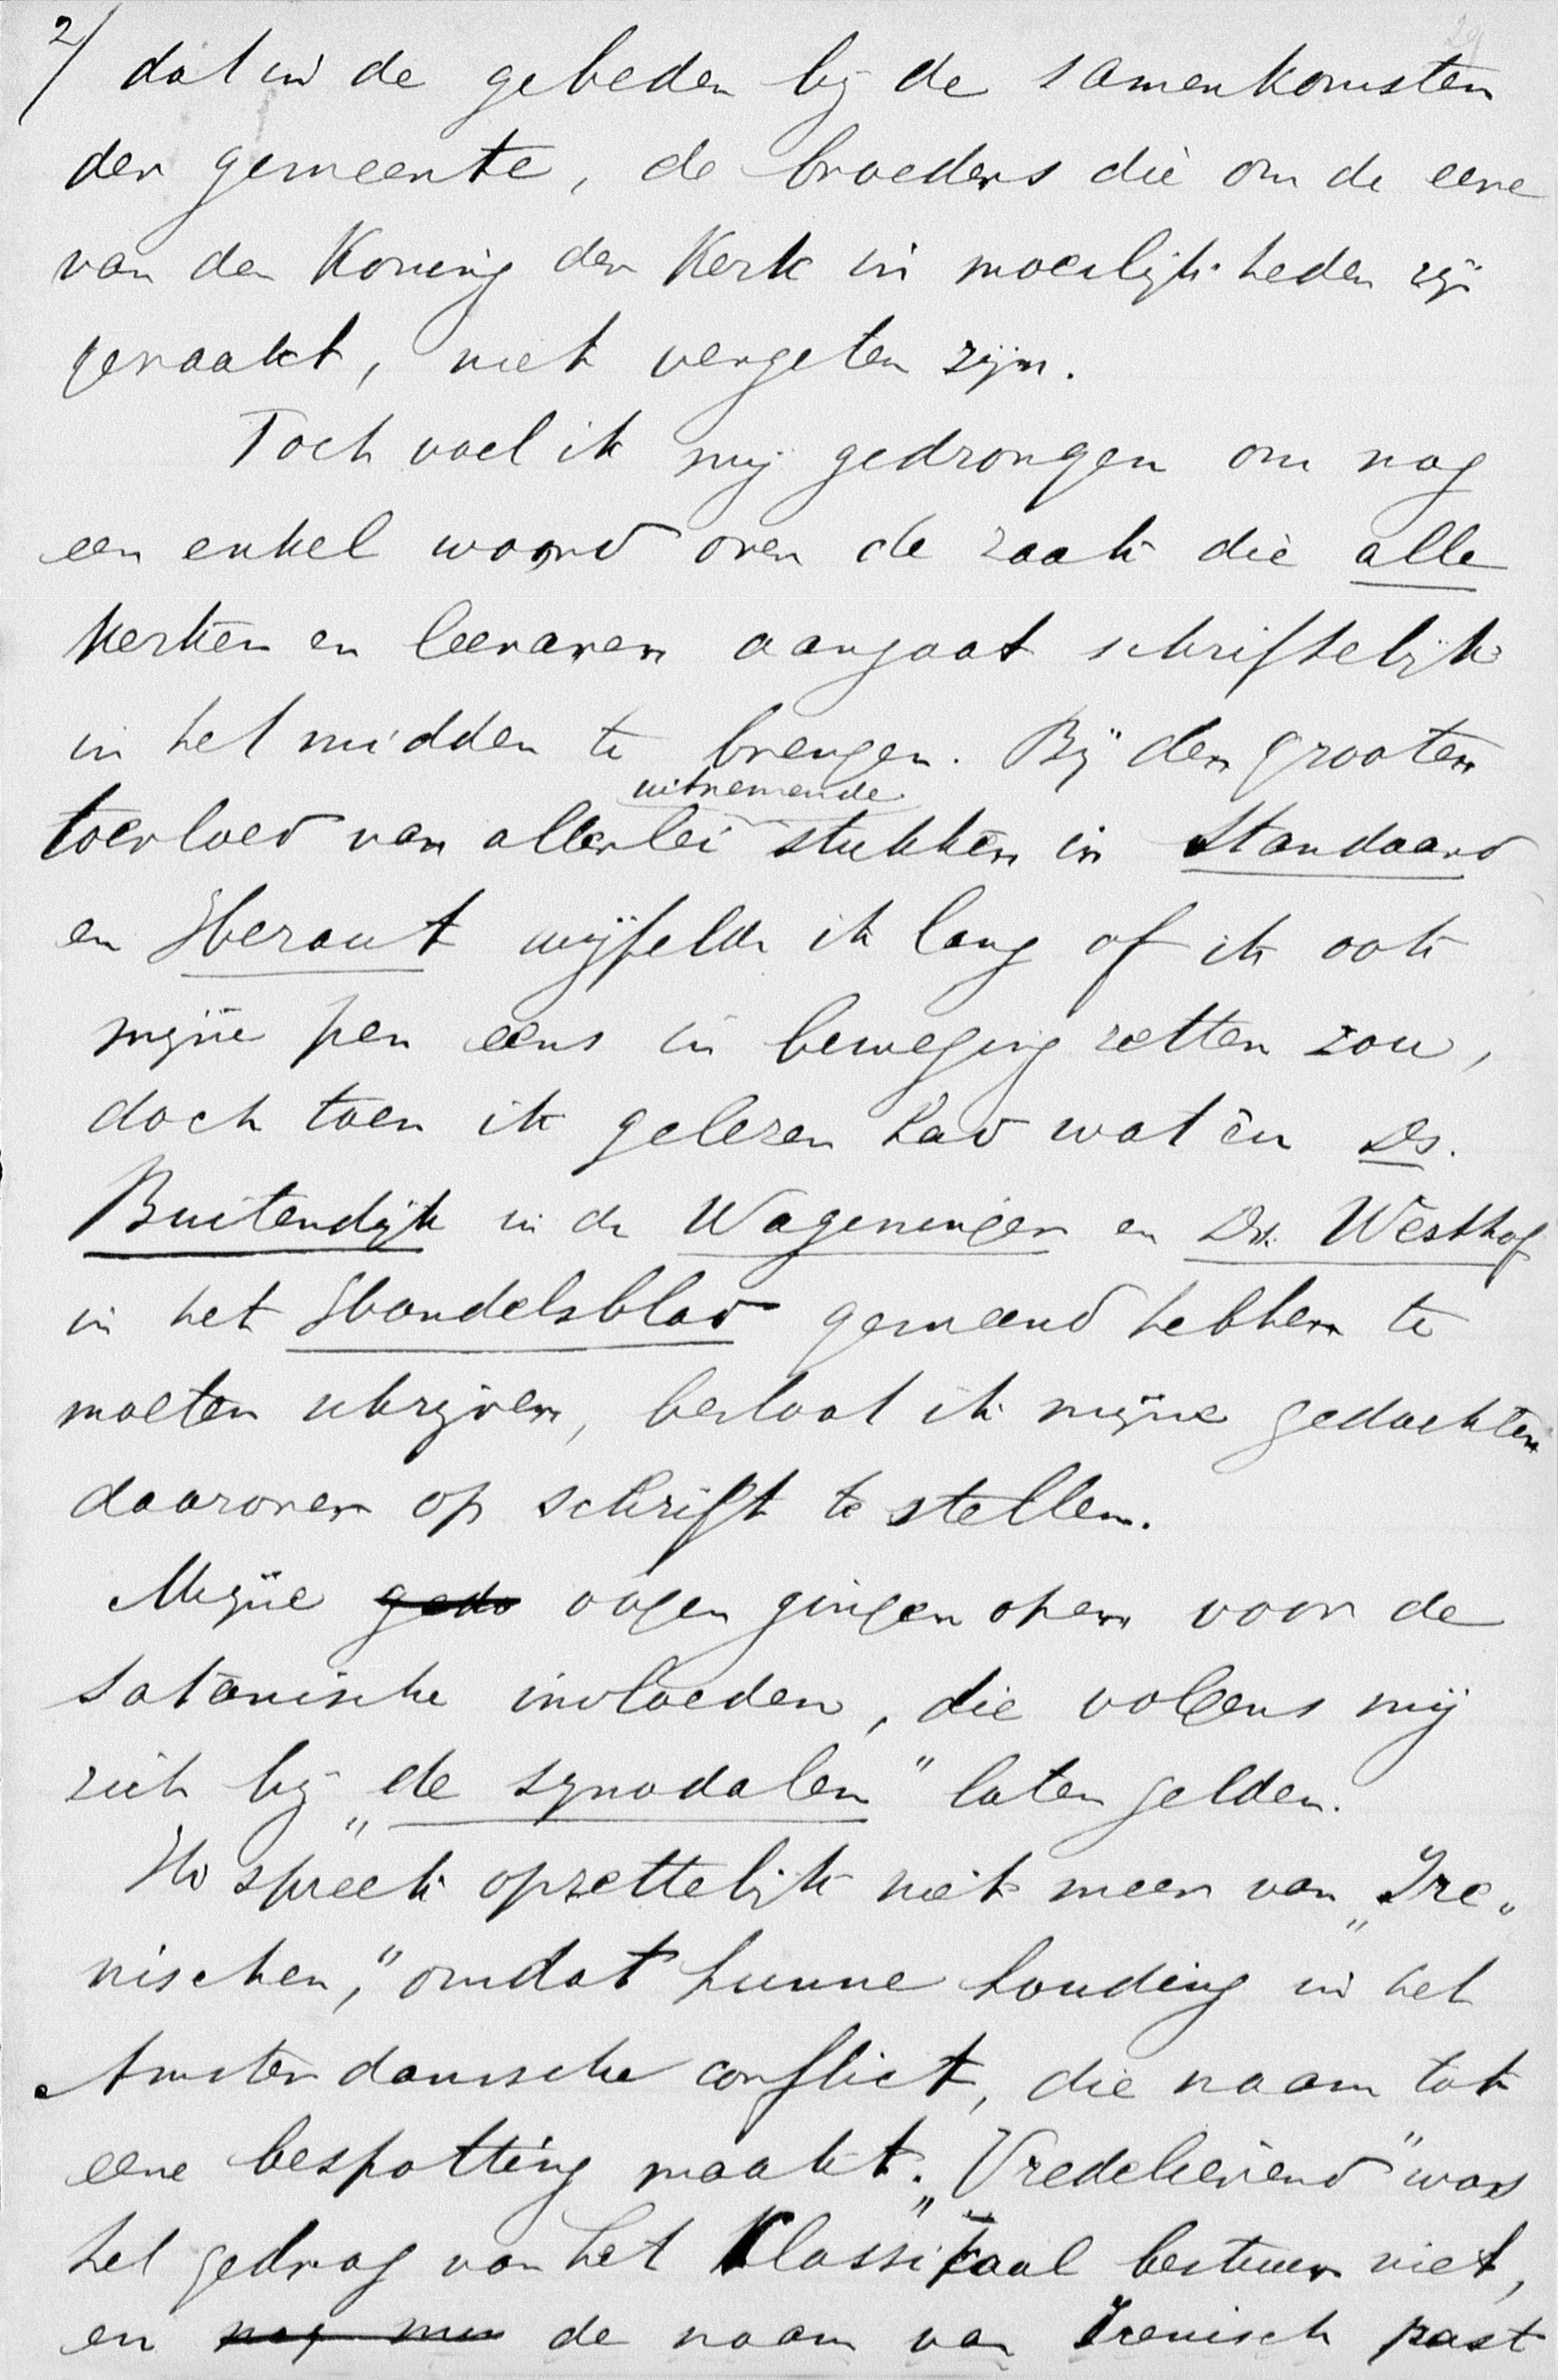 2/ dat in de gebeden bij de samenkomsten
der gemeente, de broeders die om de eere
van den Koning der Kerk in moeilijkheden zijn
geraakt, niet vergeten zijn.
Toch voel ik mij gedrongen om nog
een enkel woord over de zaak die alle
kerken en leeraren aangaat schriftelijk
in het midden te brengen. Bij den grooten
toevloed van allerlei uitnemende stukken in Standaard
en Heraut twijfelde ik lang of ik ook
mijne pen eens in beweging zetten zou,
doch toen ik gelezen had wat èn Ds.
Buitendijk in de Wageninger en Dr. Westhof
in het Handelsblad gemeend hebben te
moeten schrijven, besloot ik mijne gedachten
daarover op schrift te stellen.
Mijne geda oogen gingen open voor de
satanische invloeden, die volgens mij
zich bij „de synodalen" laten gelden.
Ik spreek opzettelijk niet meer van „Ire„
nischen," omdat hunne houding in het
Amsterdamsche conflict, die naam tot
eene bespotting maakt. „Vredelievend" was
het gedrag van het Klassikaal bestuur niet,
en de naam van Irenisch past